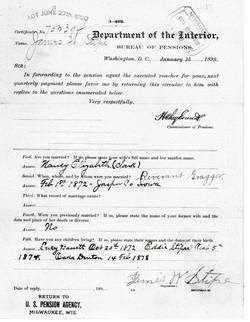 ACT JUNE 27TH 1890
3—402.
Certificate No.
Name, James W.
Department of the Interior,
BUREAU OF PENSIONS,
Washington, D. C., January 15, 1898.
SIR:
In forwarding to the pension agent the executed voucher for your next
quarterly payment please favor me by returning this circular to him with
replies to the questions enumerated below.
Very respectfully,
Commissioner of Pensions.
First. Are you married? If so, please state your wife's full name and her maiden name.
Nancy Elizabeth (Clark)
Second. When, where, and by whom were you married?
Feb 1st 1872 — Jasper Co Iowa
Third. What record of marriage exists?
Fourth. Were you previously married? If so, please state the name of your former wife and the date and place of her death or divorce.
No
Fifth. Have you any children living? If so, please state their names and the dates of their birth.
Oct 20th 1872 Eddie
1874. Denton 14 Feb 1878
James W
Date of reply,
RETURN TO
U. S. PENSION AGENCY,
MILWAUKEE, WIS.